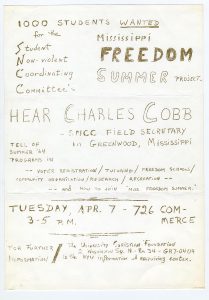 1000 STUDENTS WANTED
for the
Student
Non-violent
Coordinating
Committee's
Mississippi
FREEDOM
SUMMER PROJECT.
HEAR CHARLES COBB
- SNCC FIELD SECRETARY
in GREENWOOD, Mississippi
TELL OF
SUMMER '64
PROGRAMS IN
-- VOTER REGISTRATION / TUTORING / FREEDOM SCHOOLS/
COMMUNITY ORGANIZATION / RESEARCH / RECREATION --
-- and HOW TO JOIN "MISS. FREEDOM SUMMER."
TUESDAY, APR. 7 - 726 COM-
3-5 P.M. MERCE
FOR FURTHER
INFORMATION
The University Christian Foundation
Washington Sq. N. - Rm 34 -
is the NYU information & recruiting center.